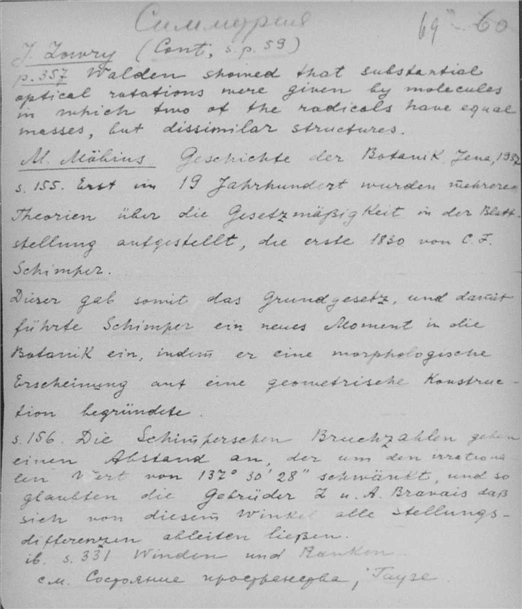 Симметрия
69 - 60
T. Lowry (Cont, s. p. 59)
p. 357 Walden showed that substantial
optical rotations were given by molecules
in which two of the radicals have equal
masses, but dissimilar structures.
M. Möbius Geschichte der Botanik, Jena, 1937
s. 155. Erst im 19 Jahrhundert wurden mehrere
Theorien über die Gesetzmäßigkeit in der Blatt-
stellung aufgestellt, die erste 1830 von C. F.
Schimper.
Dieser gab somit das Grundgesetz, und damit
führte Schimper ein neues Moment in die
Botanik ein, indem er eine morphologische
Erscheinung auf eine geometrische Konstruc-
tion begründete.
s. 156. Die Schimperschen Bruchzahlen geben
einen Abstand an, der um den irrationa-
len Wert von 137° 30' 28" schwankt, und so
glaubten die Gebrüder L u. A. Bravais daß
sich von diesem Winkel alle Stellungs-
differenzen ableiten ließen.
ib. s. 331 Winden und Ranken
см. Состояние пространства, Гаузе.